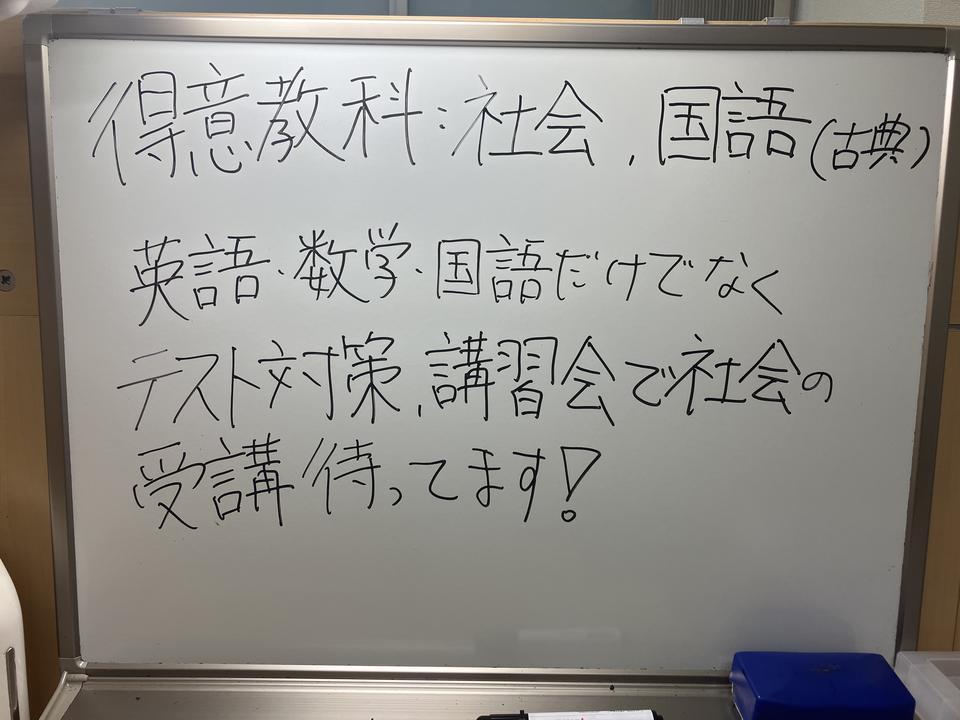 得意教科:社会、国語(古典)
英語・数学・国語だけでなく
テスト対策、講習会で社会の
受講待ってます!